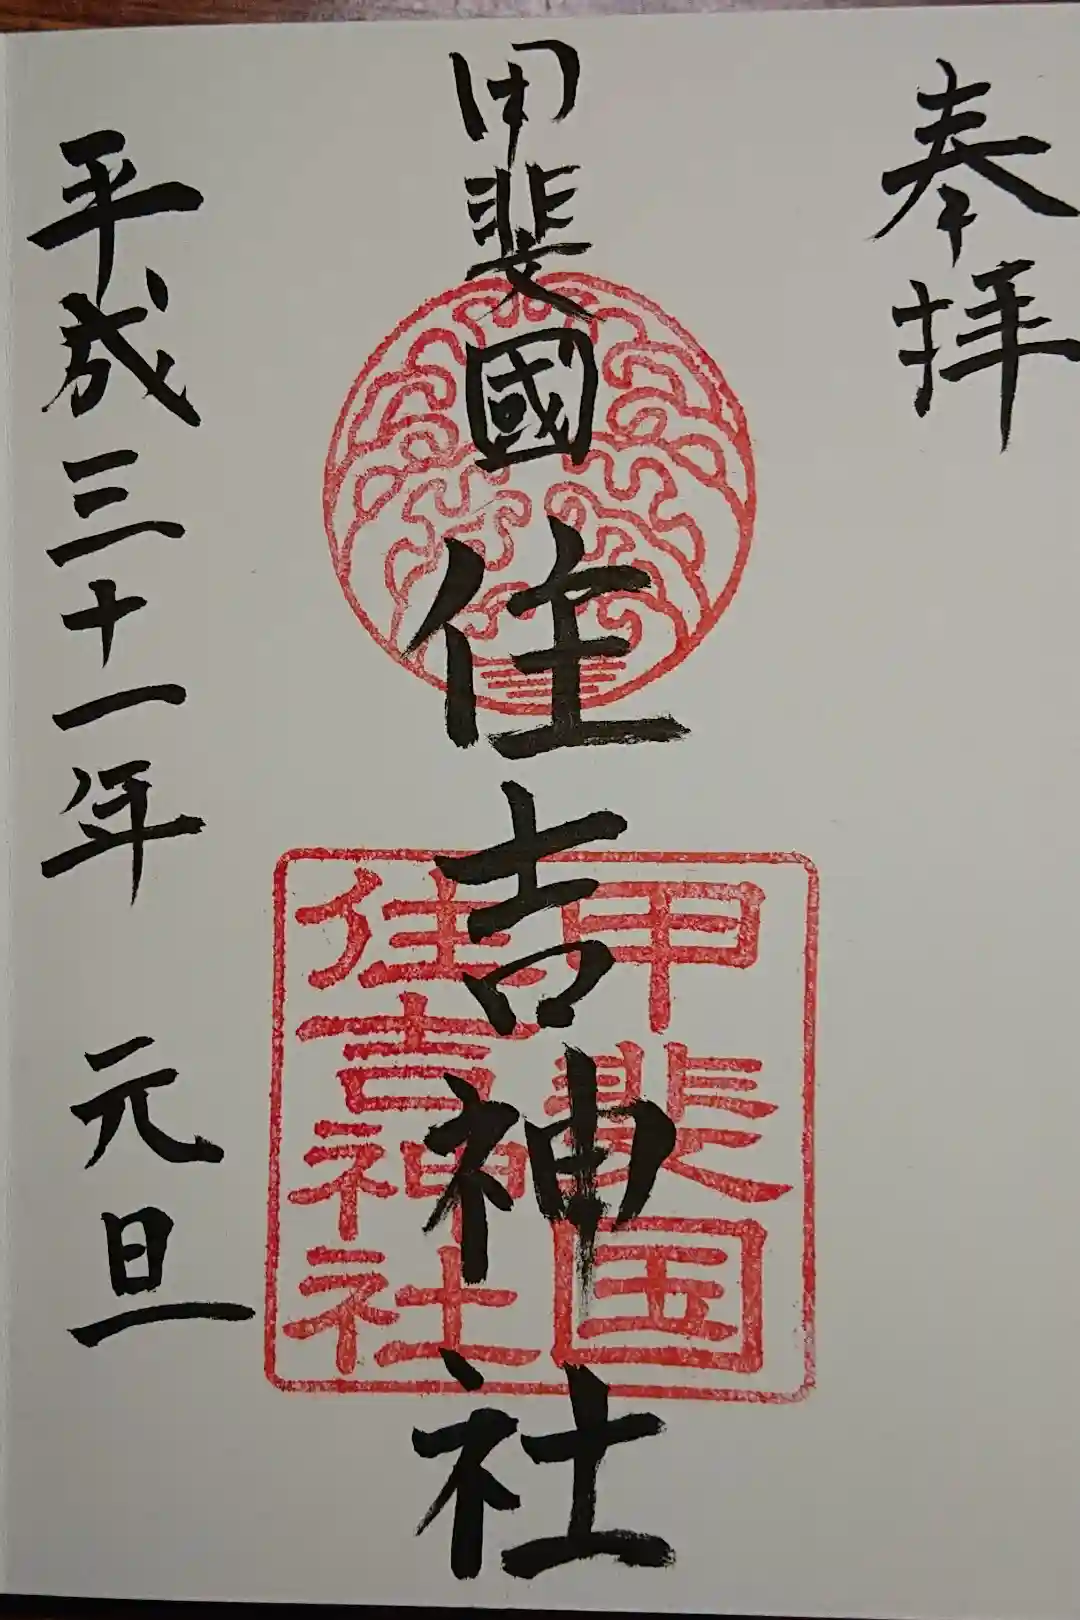 奉拝
甲斐國 住吉神社
甲斐国
住吉神社
平成三十一年 元旦